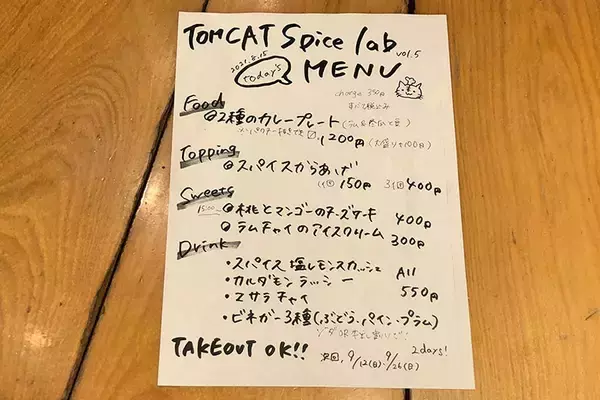 TOMCAT Spice lab vol.5
2021.8.15 today's MENU
charge 350円
すべて税込み
Food
◎2種のカレープレート(ラム&
1200円 (大盛り+100円)
Topping
◎スパイスからあげ
1コ 150円 3コ 400円
Sweets
15:00~ ◎桃とマンゴーのチーズケーキ 400円
◎ラムチャイのアイスクリーム 300円
Drink
・スパイス塩レモンスカッシュ All
・カルダモンラッシー 550円
・マサラチャイ
・ビネガー3種(ぶどう、パイン、プラム)
TAKEOUT OK!! 次回、9/12(日)、9/26(日) 2days!